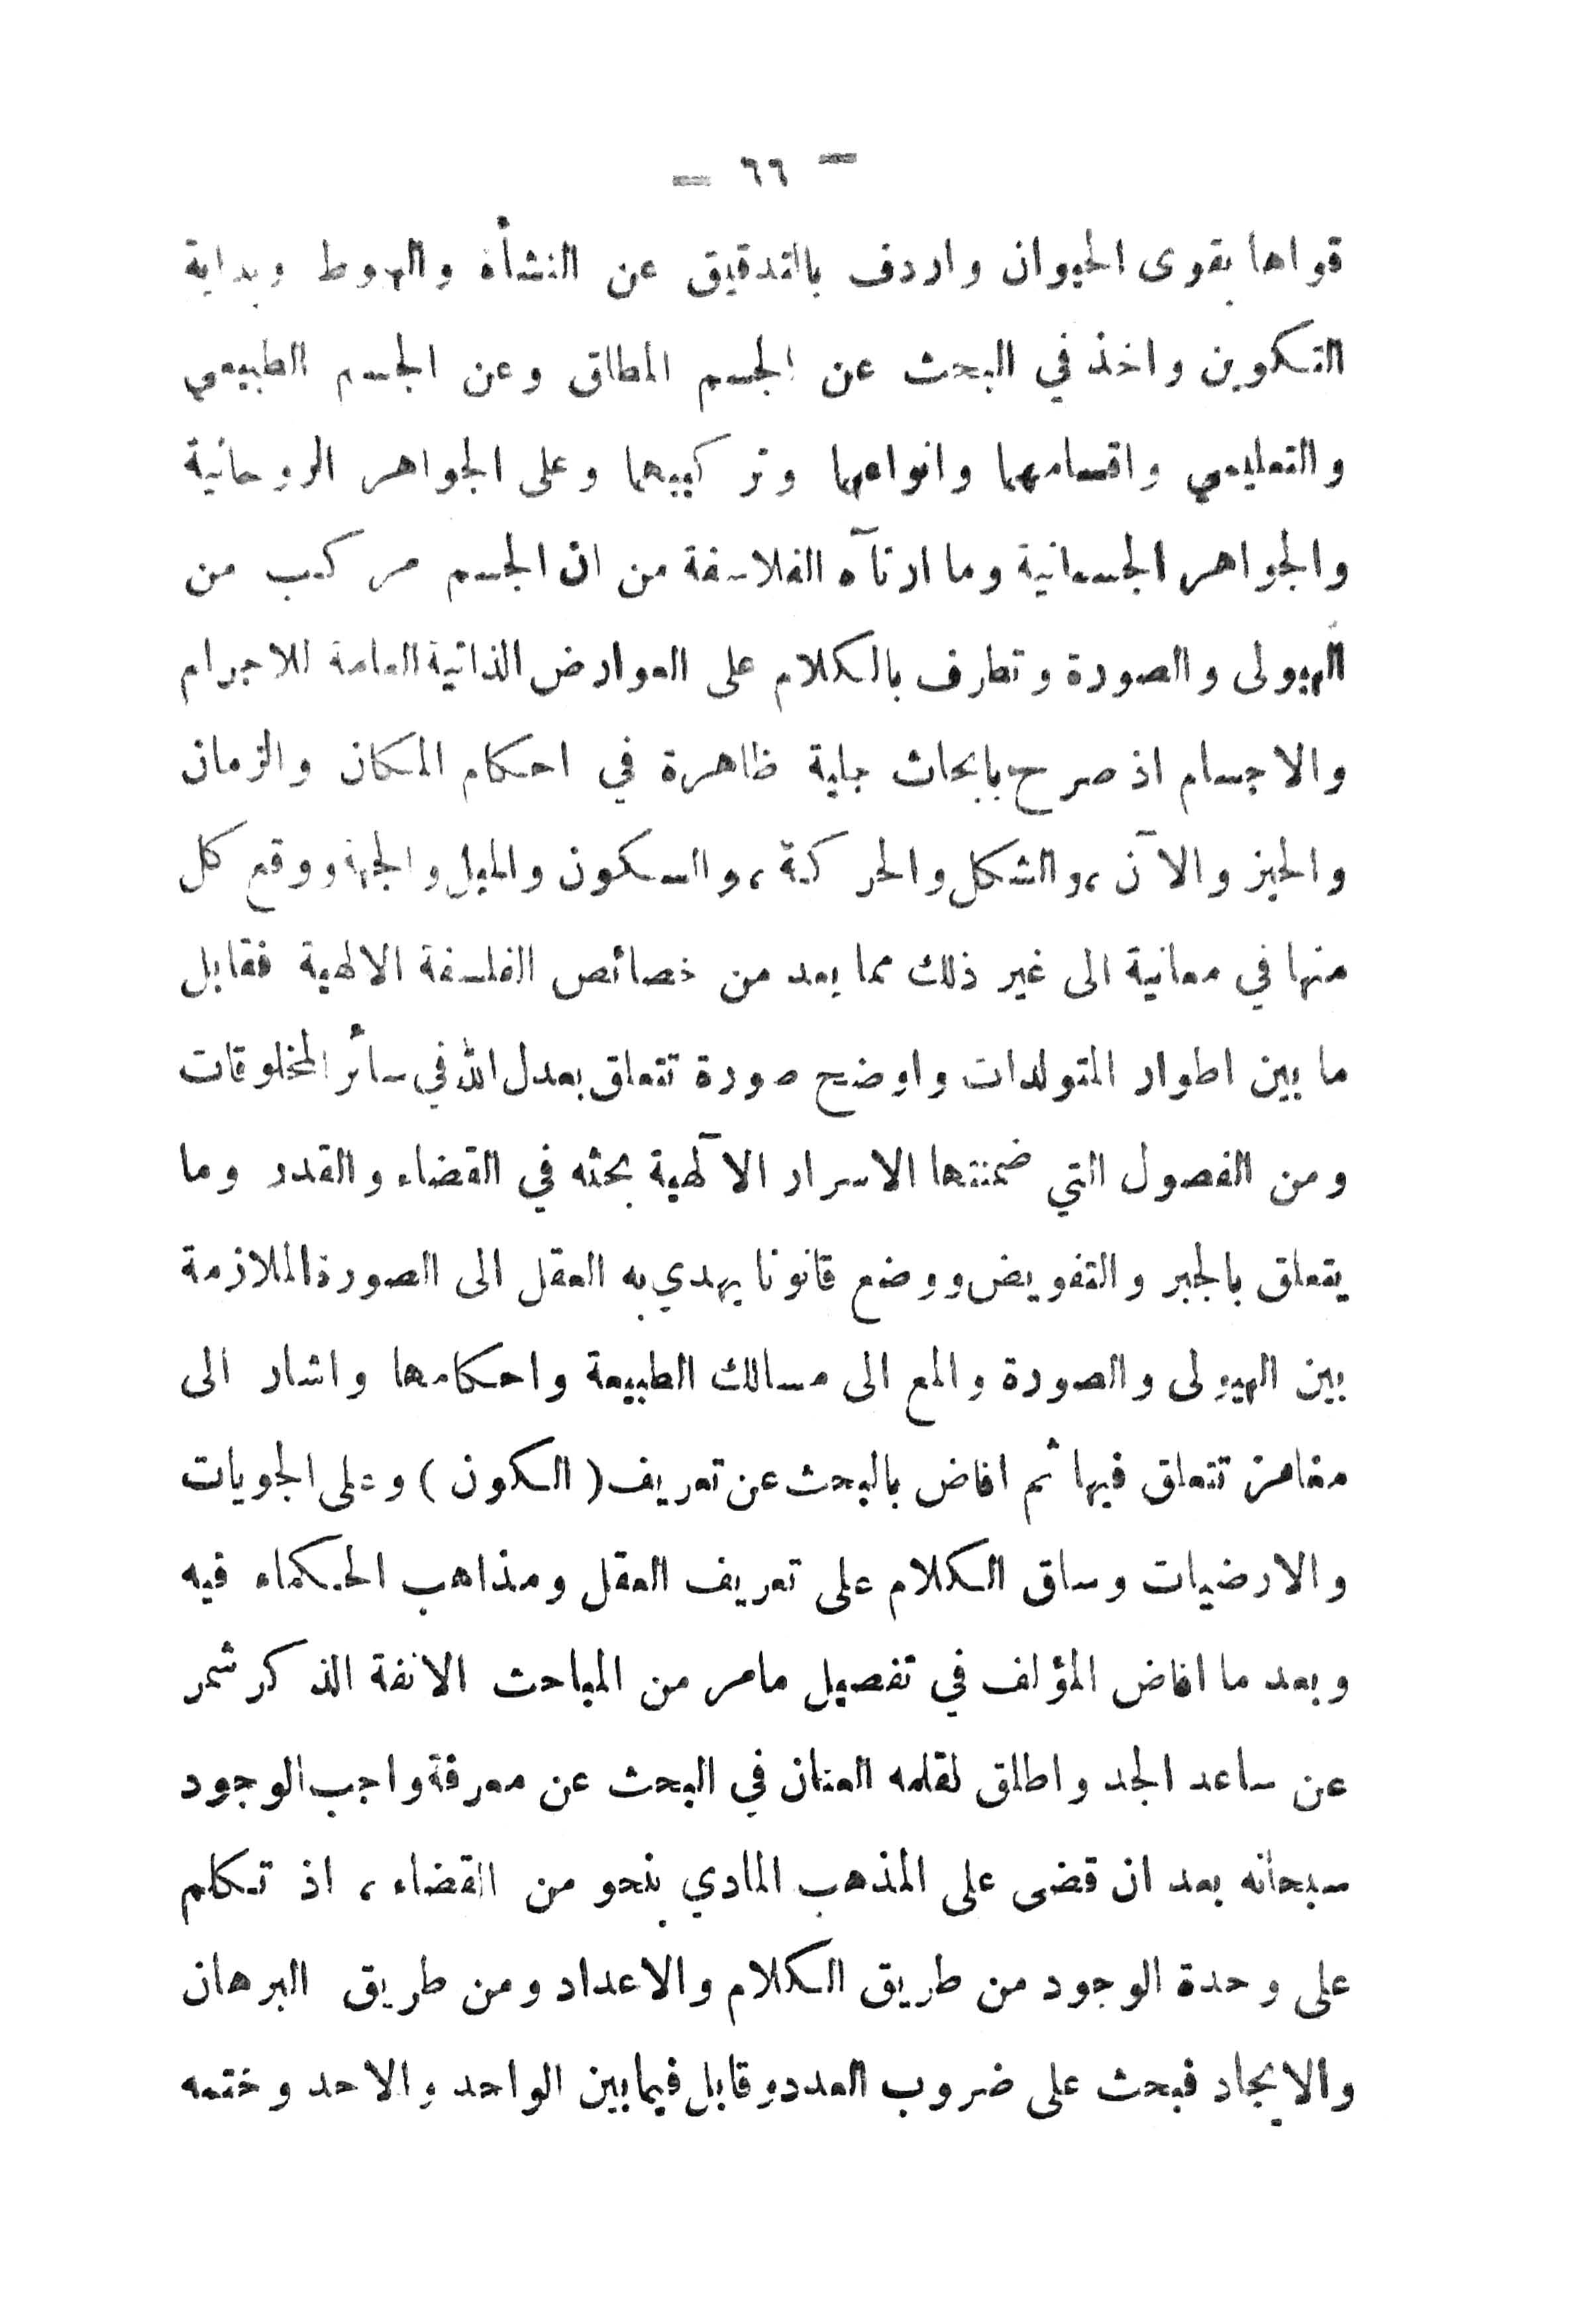 – ٦٦ –
قواها بقوى الحيوان واردف بالتدقيق عن النشأة والهبوط وبداية
التكوين واخذ في البحث عن الجسم المطلق وعن الجسم الطبيعي
والتعليمي واقسامهما وانواعهما وتركيبهما وعلى الجواهر الروحانية
والجواهر الجسمانية وما ارتآه الفلاسفة من ان الجسم مركب من
الهيولى والصورة وتطرف بالكلام على العوارض الذاتية العامة للاجرام
والاجسام اذ صرح بابحاث جلية ظاهرة في احكام المكان والزمان
والحيز والآن ، والشكل والحركة ، والسكون والميل والجهة ووقع كل
منها في معانية الى غير ذلك مما يعد من خصائص الفلسفة الالهية فقابل
ما بين اطوار المتولدات واوضح صورة تتعلق بعدل الله في سائر المخلوقات
ومن الفصول التي ضمنتها الاسرار الآلهية بحثه في القضاء والقدر وما
يتعلق بالجبر والتفويض ووضع قانونا يهدي به العقل الى الصورة الملازمة
بين الهيولى والصورة والمع الى مسالك الطبيعة واحكامها واشار الى
مغامز تتعلق فيها ثم افاض بالبحث عن تعريف ( الكون ) وعلى الجويات
والارضيات وساق الكلام على تعريف العقل ومذاهب الحكماء فيه
وبعد ما افاض المؤلف في تفصيل مامر من المباحث الانفة الذكر شمر
عن ساعد الجد واطلق لقلمه العنان في البحث عن معرفة واجب الوجود
سبحانه بعد ان قضى على المذهب المادي بنحو من القضاء ، اذ تكلم
على وحدة الوجود من طريق الكلام والاعداد ومن طريق البرهان
والايجاد فبحث على ضروب العدد وقابل فيما بين الواحد والاحد وختمه